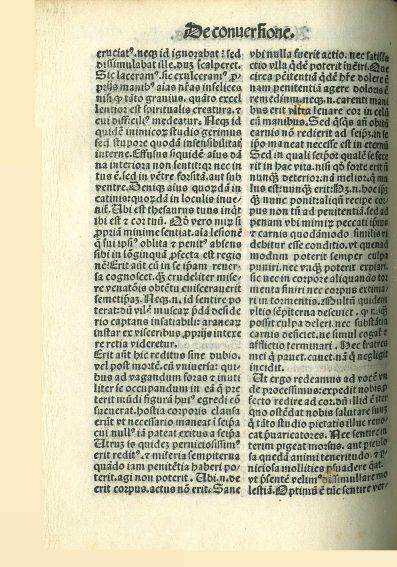 De conuersione.
cruciat⁹. neq; id ignorabat: sed
dissimulabat ille. duʒ scalperet.
Sic laceram⁹. sic exulceram⁹. ꝓ
prijs manib⁹ aīas nr̄as infelices
nisi ꝙ tāto grauius. quāto excel
lentior est spiritualis creatura. ⁊
cui difficili⁹ medeatur. Neq; id
quidē inimicoꝝ studio gerimus
sed stupore quodā insensibilitat
interne. Effusus siquidē aīus dā
na interiora non sentit: q̄ nec in
tus ē. sed in vētre forsitā. aut sub
ventre. Deniq; aīus quorūdā in
catinis: quorūdā in loculis inue
nit̄. Ubi est thesaurus tuus inq̄t
ibi est ⁊ cor tuū. Qd̄ vero mir̄ si
ꝓpriā minime sentiat. aīa lesionē
q̄ sui ipsi⁹ oblita ⁊ penit⁹ absens
sibi in longinquā ꝓfecta est regio
nē: Erit aūt cū in se ipsam reuer
sa cognoscet. ꝙ crudeliter mise
re venatōis obtētu euiscerauerit
semetipsaʒ. Neq;.n. id sentire po
terat: dū vilē muscaꝝ p̄dā deside
rio captans insatiabili: araneaꝝ
instar ex visceribus ꝓprijs intexe
re retia videretur.
Erit aūt hic reditus sine dubio.
vel post mortē. cū vniuersa quī
bus ad vagandum foras ⁊ inuti
liter se occupandum in ea q̄ pre
terit mūdi figurā hui⁹ egredi cō
sueuerat. hostia corporis clausa
erūt vt necessario maneat ī seipa
cui null⁹ iā pateat exitus a seipa
Utruʒ is quidez perniciosissim⁹
erit redit⁹. ⁊ miseria sempiterna
quādo iam penitētia haberi po
terit. agi non poterit. Ubi.n. de
erit corpus. actus nō erit. Sane
vbi nulla fuerit actio. nec satisfa
ctio vlla q̄dē poterit inēiri. Quē
circa pēitentiā q̄dē hr̄e dolere ē
nam penitentiā agere doloris ē
remediū. neq;.n. carenti mani
bus erit vltra leuare cor in celū
cū manibus. Sed q̄sq; an̄ obitū
carnis nō redierit ad seip̄ꝫ. in se
ip̄o maneat necesse est in eternū
Sed in quali seip̄o: quale se fece
rit in hac vita. nisi q̄ forte erit ⁊
nunq; deterior. nā melior. q̄ ma
lus est: nunq; erit:
nunc ponit: aliqn̄ recipe cor
pus non tn̄ ad penitentiā. sed ad
penam vbi mimiꝝ peccati ipsius
⁊ carnis quodāmodo similis vi
debitur esse conditio. vt quemad
modum poterit semper culpa
puniri. nec vnq̄ꝫ poterit expiari.
sic nec in corpore aliquando tor
menta finiri nec corpus extima
ri in tormentis. Multū quidem
vltio sēpiterna deseuit
possit culpa deleri. nec substātia
carnis desicit. ne simul cogat ⁊
afflictio terminari. Hec fratres
mei q̄ pauet. cauet. nā q̄ negligit
incidit.
Ut ergo redeamus ad vocē vn̄
de processimus: expedit nobis ꝓ
fecto redire ad cor. dn̄i illud ē iter
quo ostēdat nobis salutare suuʒ
q̄ tāto studio pietatis ille reuo
cat p̄uaricatores. Nec sentire in
terim pigeat morsus. aut picula
sa quedā animi teneritudo. ⁊ ꝑ
niciosa mollities ꝑsuadere q̄at.
vt p̄sentē velim⁹ dissimulare mo
lestiā. Optimū ē tūc sentire ver-